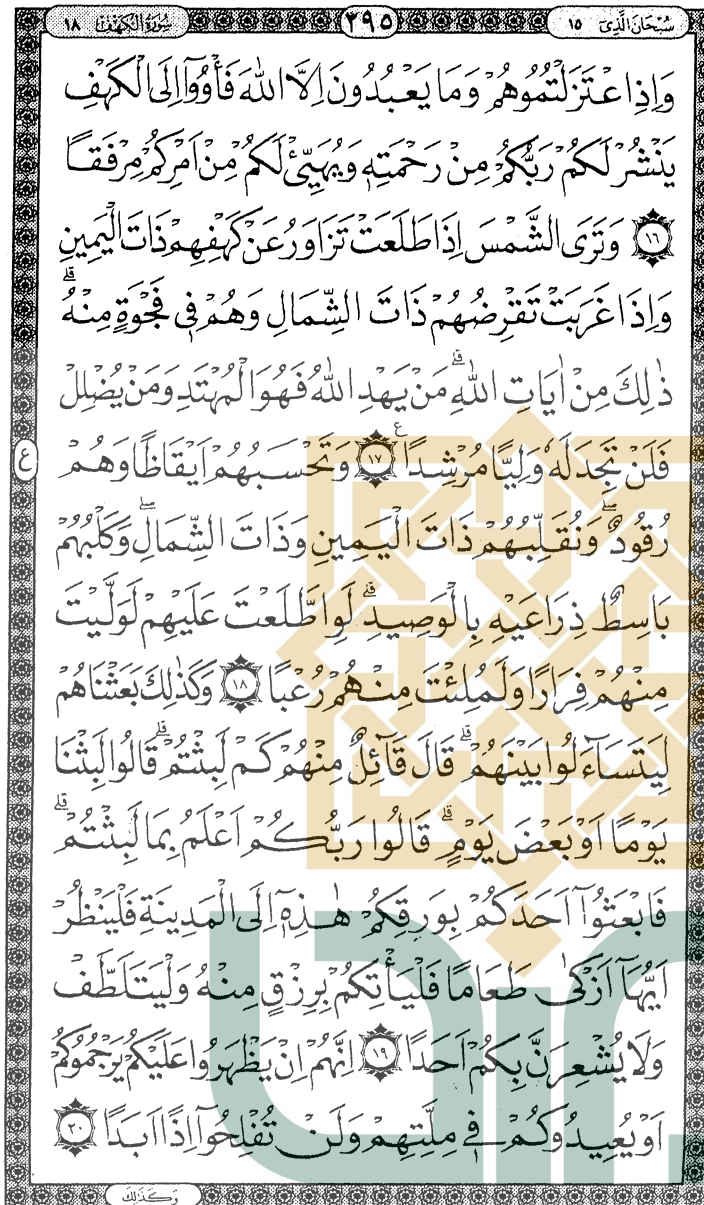 سُبْحَانَ الَّذِىٓ ١٥
٢٩٥
سُورَةُ الْكَهْفِ ١٨
وَاِذِاعْتَزَلْتُمُوهُمْ وَمَا يَعْبُدُونَ اِلَّا اللّٰهَ فَأْوُٓۧا اِلَى الْكَهْفِ
يَنْشُرْ لَكُمْ رَبُّكُمْ مِنْ رَحْمَتِهٖ وَيُهَيِّئْ لَكُمْ مِنْ اَمْرِكُمْ مِرْفَقًا
﴿١٦﴾ وَتَرَى الشَّمْسَ اِذَا طَلَعَتْ تَزَاوَرُ عَنْ كَهْفِهِمْ ذَاتَ الْيَمِينِ
وَاِذَا غَرَبَتْ تَقْرِضُهُمْ ذَاتَ الشِّمَالِ وَهُمْ فِى فَجْوَةٍ مِنْهُۜ
ذٰلِكَ مِنْ اٰيَاتِ اللّٰهِۜ مَنْ يَهْدِ اللّٰهُ فَهُوَ الْمُهْتَدِ وَمَنْ يُضْلِلْ
فَلَنْ تَجِدَ لَهُ وَلِيًّا مُرْشِدًا ﴿١٧﴾ وَتَحْسَبُهُمْ اَيْقَاظًا وَهُمْ
ع
رُقُودٌۗ وَنُقَلِّبُهُمْ ذَاتَ الْيَمِينِ وَذَاتَ الشِّمَالِۗ وَكَلْبُهُمْ
بَاسِطٌ ذِرَاعَيْهِ بِالْوَصِيدِۜ لَوِ اطَّلَعْتَ عَلَيْهِمْ لَوَلَّيْتَ
مِنْهُمْ فِرَارًا وَلَمُلِئْتَ مِنْهُمْ رُعْبًا ﴿١٨﴾ وَكَذٰلِكَ بَعَثْنَاهُمْ
لِيَتَسَآءَلُوا بَيْنَهُمْۜ قَالَ قَآئِلٌ مِنْهُمْ كَمْ لَبِثْتُمْۜ قَالُوا لَبِثْنَا
يَوْمًا اَوْ بَعْضَ يَوْمٍۜ قَالُوا رَبُّكُمْ اَعْلَمُ بِمَا لَبِثْتُمْۜ
فَابْعَثُوٓا اَحَدَكُمْ بِوَرِقِكُمْ هٰذِهٖٓ اِلَى الْمَدِينَةِ فَلْيَنْظُرْ
اَيُّهَآ اَزْكٰى طَعَامًا فَلْيَأْتِكُمْ بِرِزْقٍ مِنْهُ وَلْيَتَلَطَّفْ
وَلَا يُشْعِرَنَّ بِكُمْ اَحَدًا ﴿١٩﴾ اِنَّهُمْ اِنْ يَظْهَرُوا عَلَيْكُمْ يَرْجُمُوكُمْ
اَوْ يُعِيدُوكُمْ فِى مِلَّتِهِمْ وَلَنْ تُفْلِحُوٓا اِذًا اَبَدًا ﴿٢٠﴾
وَكَذٰلِكَ